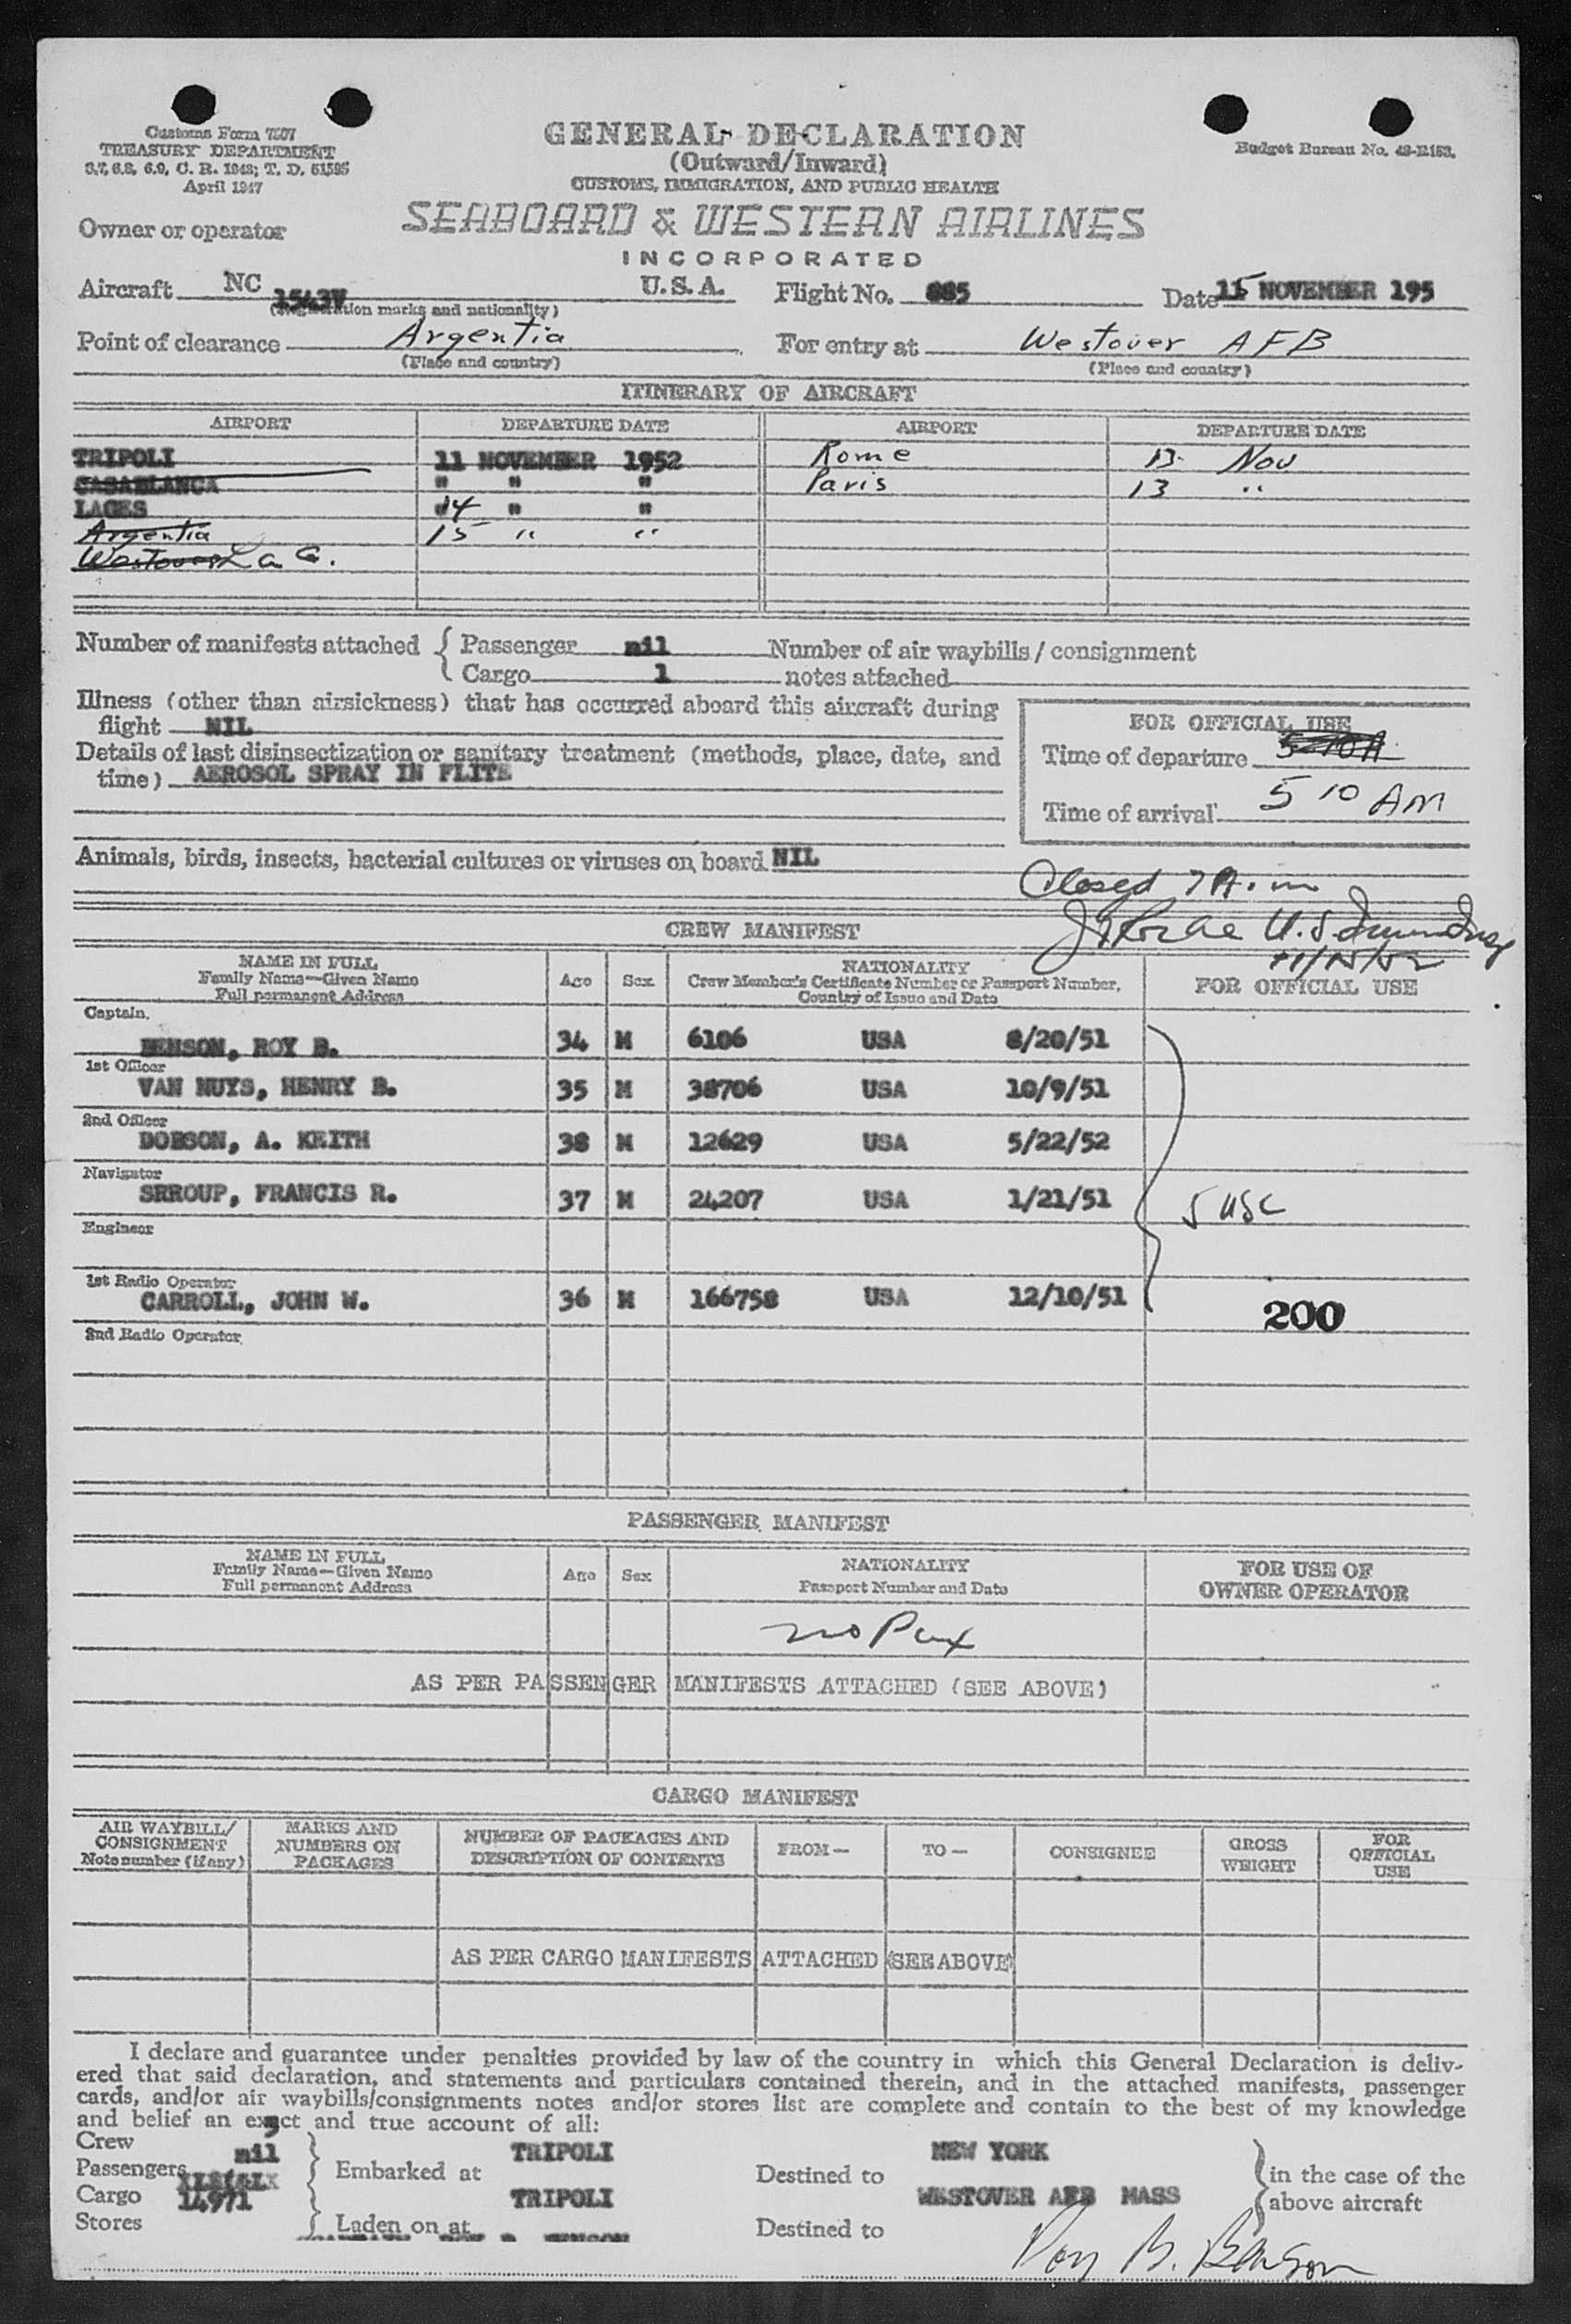 Customs Form 7507
TREASURY DEPARTMENT
3.7, 6.8, 6.9, C. R. 1943; T. D. 51595
April 1947
GENERAL DECLARATION
(Outward/Inward)
CUSTOMS, IMMIGRATION, AND PUBLIC HEALTH
Budget Bureau No. 48-R153.
Owner or operator SEABOARD & WESTERN AIRLINES
INCORPORATED
Aircraft NC 1543V U.S.A. Flight No. 885 Date 15 NOVEMBER 195
(Registration marks and nationality)
Point of clearance Argentia For entry at Westover AFB
(Place and country) (Place and country)
ITINERARY OF AIRCRAFT
AIRPORT DEPARTURE DATE AIRPORT DEPARTURE DATE
TRIPOLI 11 NOVEMBER 1952 Rome 13 Nov
CASABLANCA " " " Paris 13 "
LAGES 14 " "
Argentia 15 " "
Westover La G.
Number of manifests attached { Passenger nil Number of air waybills / consignment
Cargo 1 notes attached
Illness (other than airsickness) that has occurred aboard this aircraft during
flight NIL
Details of last disinsectization or sanitary treatment (methods, place, date, and
time) AEROSOL SPRAY IN FLITE
FOR OFFICIAL USE
Time of departure 5 10 A
Time of arrival 5 10 AM
Animals, birds, insects, bacterial cultures or viruses on board NIL
Closed 7 A.m
U.S. Immig
11/15/52
CREW MANIFEST
NAME IN FULL
Family Name—Given Name
Full permanent Address
Age Sex
NATIONALITY
Crew Member's Certificate Number or Passport Number,
Country of Issue and Date
FOR OFFICIAL USE
Captain
BENSON, ROY B. 34 M 6106 USA 8/20/51
1st Officer
VAN NUYS, HENRY B. 35 M 38706 USA 10/9/51
2nd Officer
DOBSON, A. KEITH 38 M 12629 USA 5/22/52
Navigator
SRROUP, FRANCIS R. 37 M 24207 USA 1/21/51
5 USC
Engineer
1st Radio Operator
CARROLL, JOHN W. 36 M 166758 USA 12/10/51
200
2nd Radio Operator
PASSENGER MANIFEST
NAME IN FULL
Family Name—Given Name
Full permanent Address
Age Sex
NATIONALITY
Passport Number and Date
FOR USE OF
OWNER OPERATOR
no Pax
AS PER PASSENGER MANIFESTS ATTACHED (SEE ABOVE)
CARGO MANIFEST
AIR WAYBILL/
CONSIGNMENT
Note number (if any)
MARKS AND
NUMBERS ON
PACKAGES
NUMBER OF PACKAGES AND
DESCRIPTION OF CONTENTS
FROM— TO— CONSIGNEE
GROSS
WEIGHT
FOR
OFFICIAL
USE
AS PER CARGO MANIFESTS ATTACHED (SEE ABOVE)
I declare and guarantee under penalties provided by law of the country in which this General Declaration is deliv-
ered that said declaration, and statements and particulars contained therein, and in the attached manifests, passenger
cards, and/or air waybills/consignments notes and/or stores list are complete and contain to the best of my knowledge
and belief an exact and true account of all:
Crew 5
Passengers nil Embarked at TRIPOLI Destined to NEW YORK in the case of the
Cargo 14971 TRIPOLI WESTOVER AFB MASS above aircraft
Stores Laden on at Destined to
BENSON
Roy B. Benson